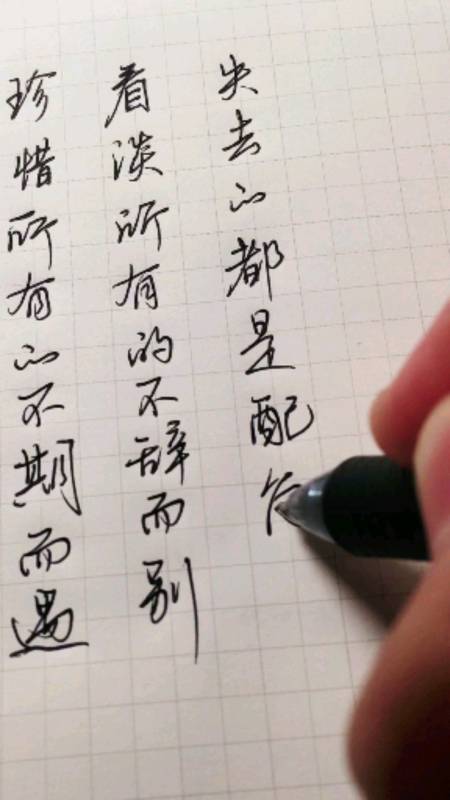 珍惜所有的不期而遇
看淡所有的不辞而别
失去的都是配